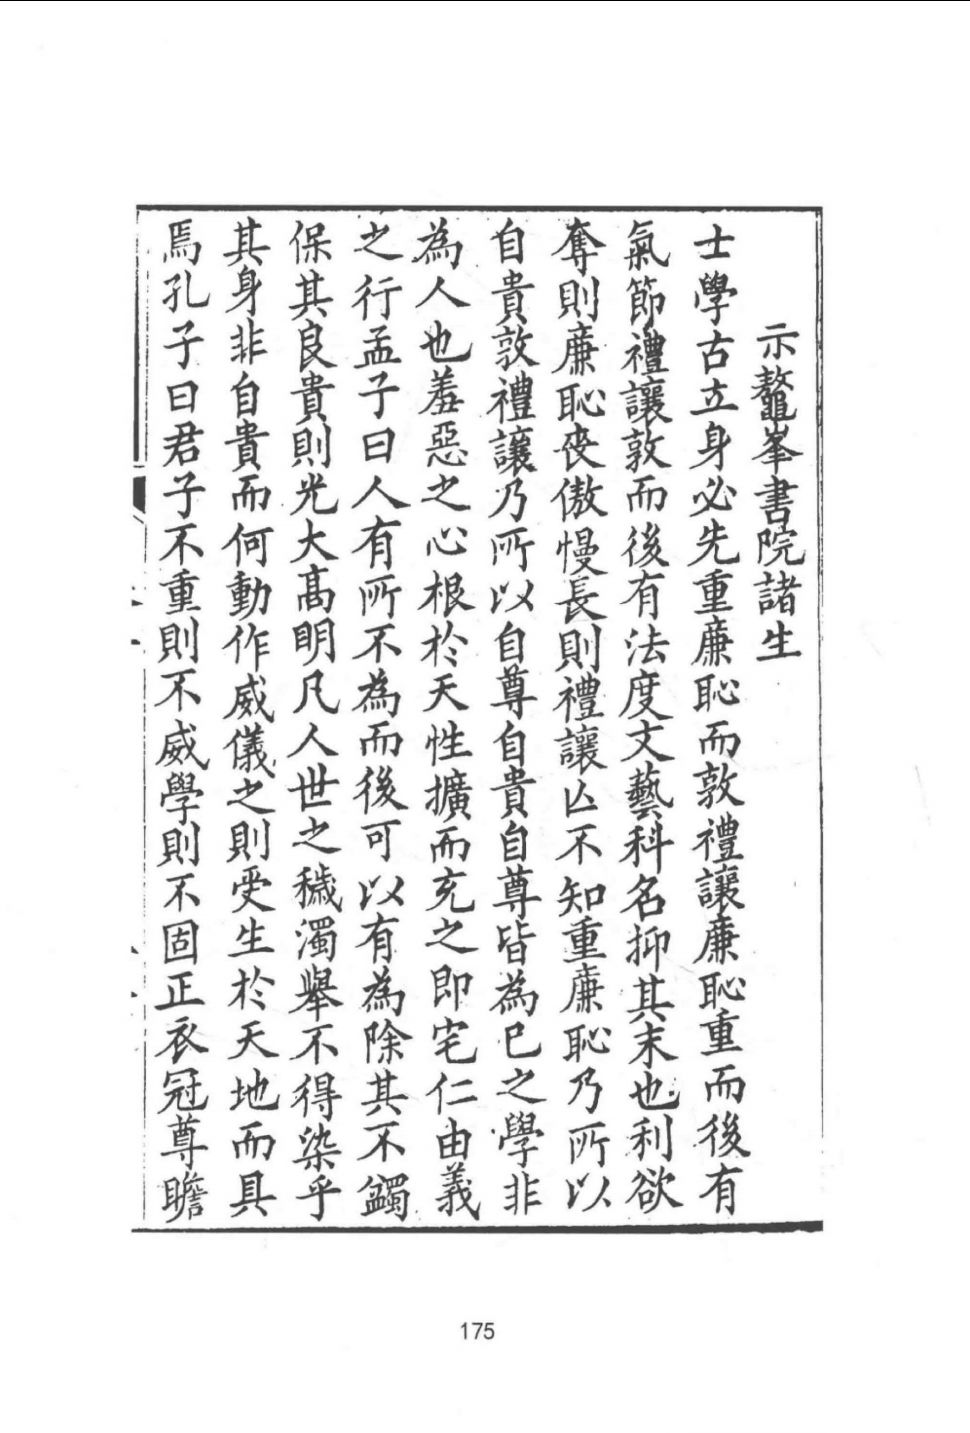 示鼇峯書院諸生
士學古立身必先重廉恥而敦禮讓廉恥重而後有
氣節禮讓敦而後有法度文藝科名抑其末也利欲
奪則廉恥喪傲慢長則禮讓亾不知重廉恥乃所以
自貴敦禮讓乃所以自尊自貴自尊皆為已之學非
為人也羞惡之心根於天性擴而充之即宅仁由義
之行孟子曰人有所不為而後可以有為除其不蠲
保其良貴則光大高明凡人世之穢濁舉不得染乎
其身非自貴而何動作威儀之則受生於天地而具
焉孔子曰君子不重則不威學則不固正衣冠尊瞻
175